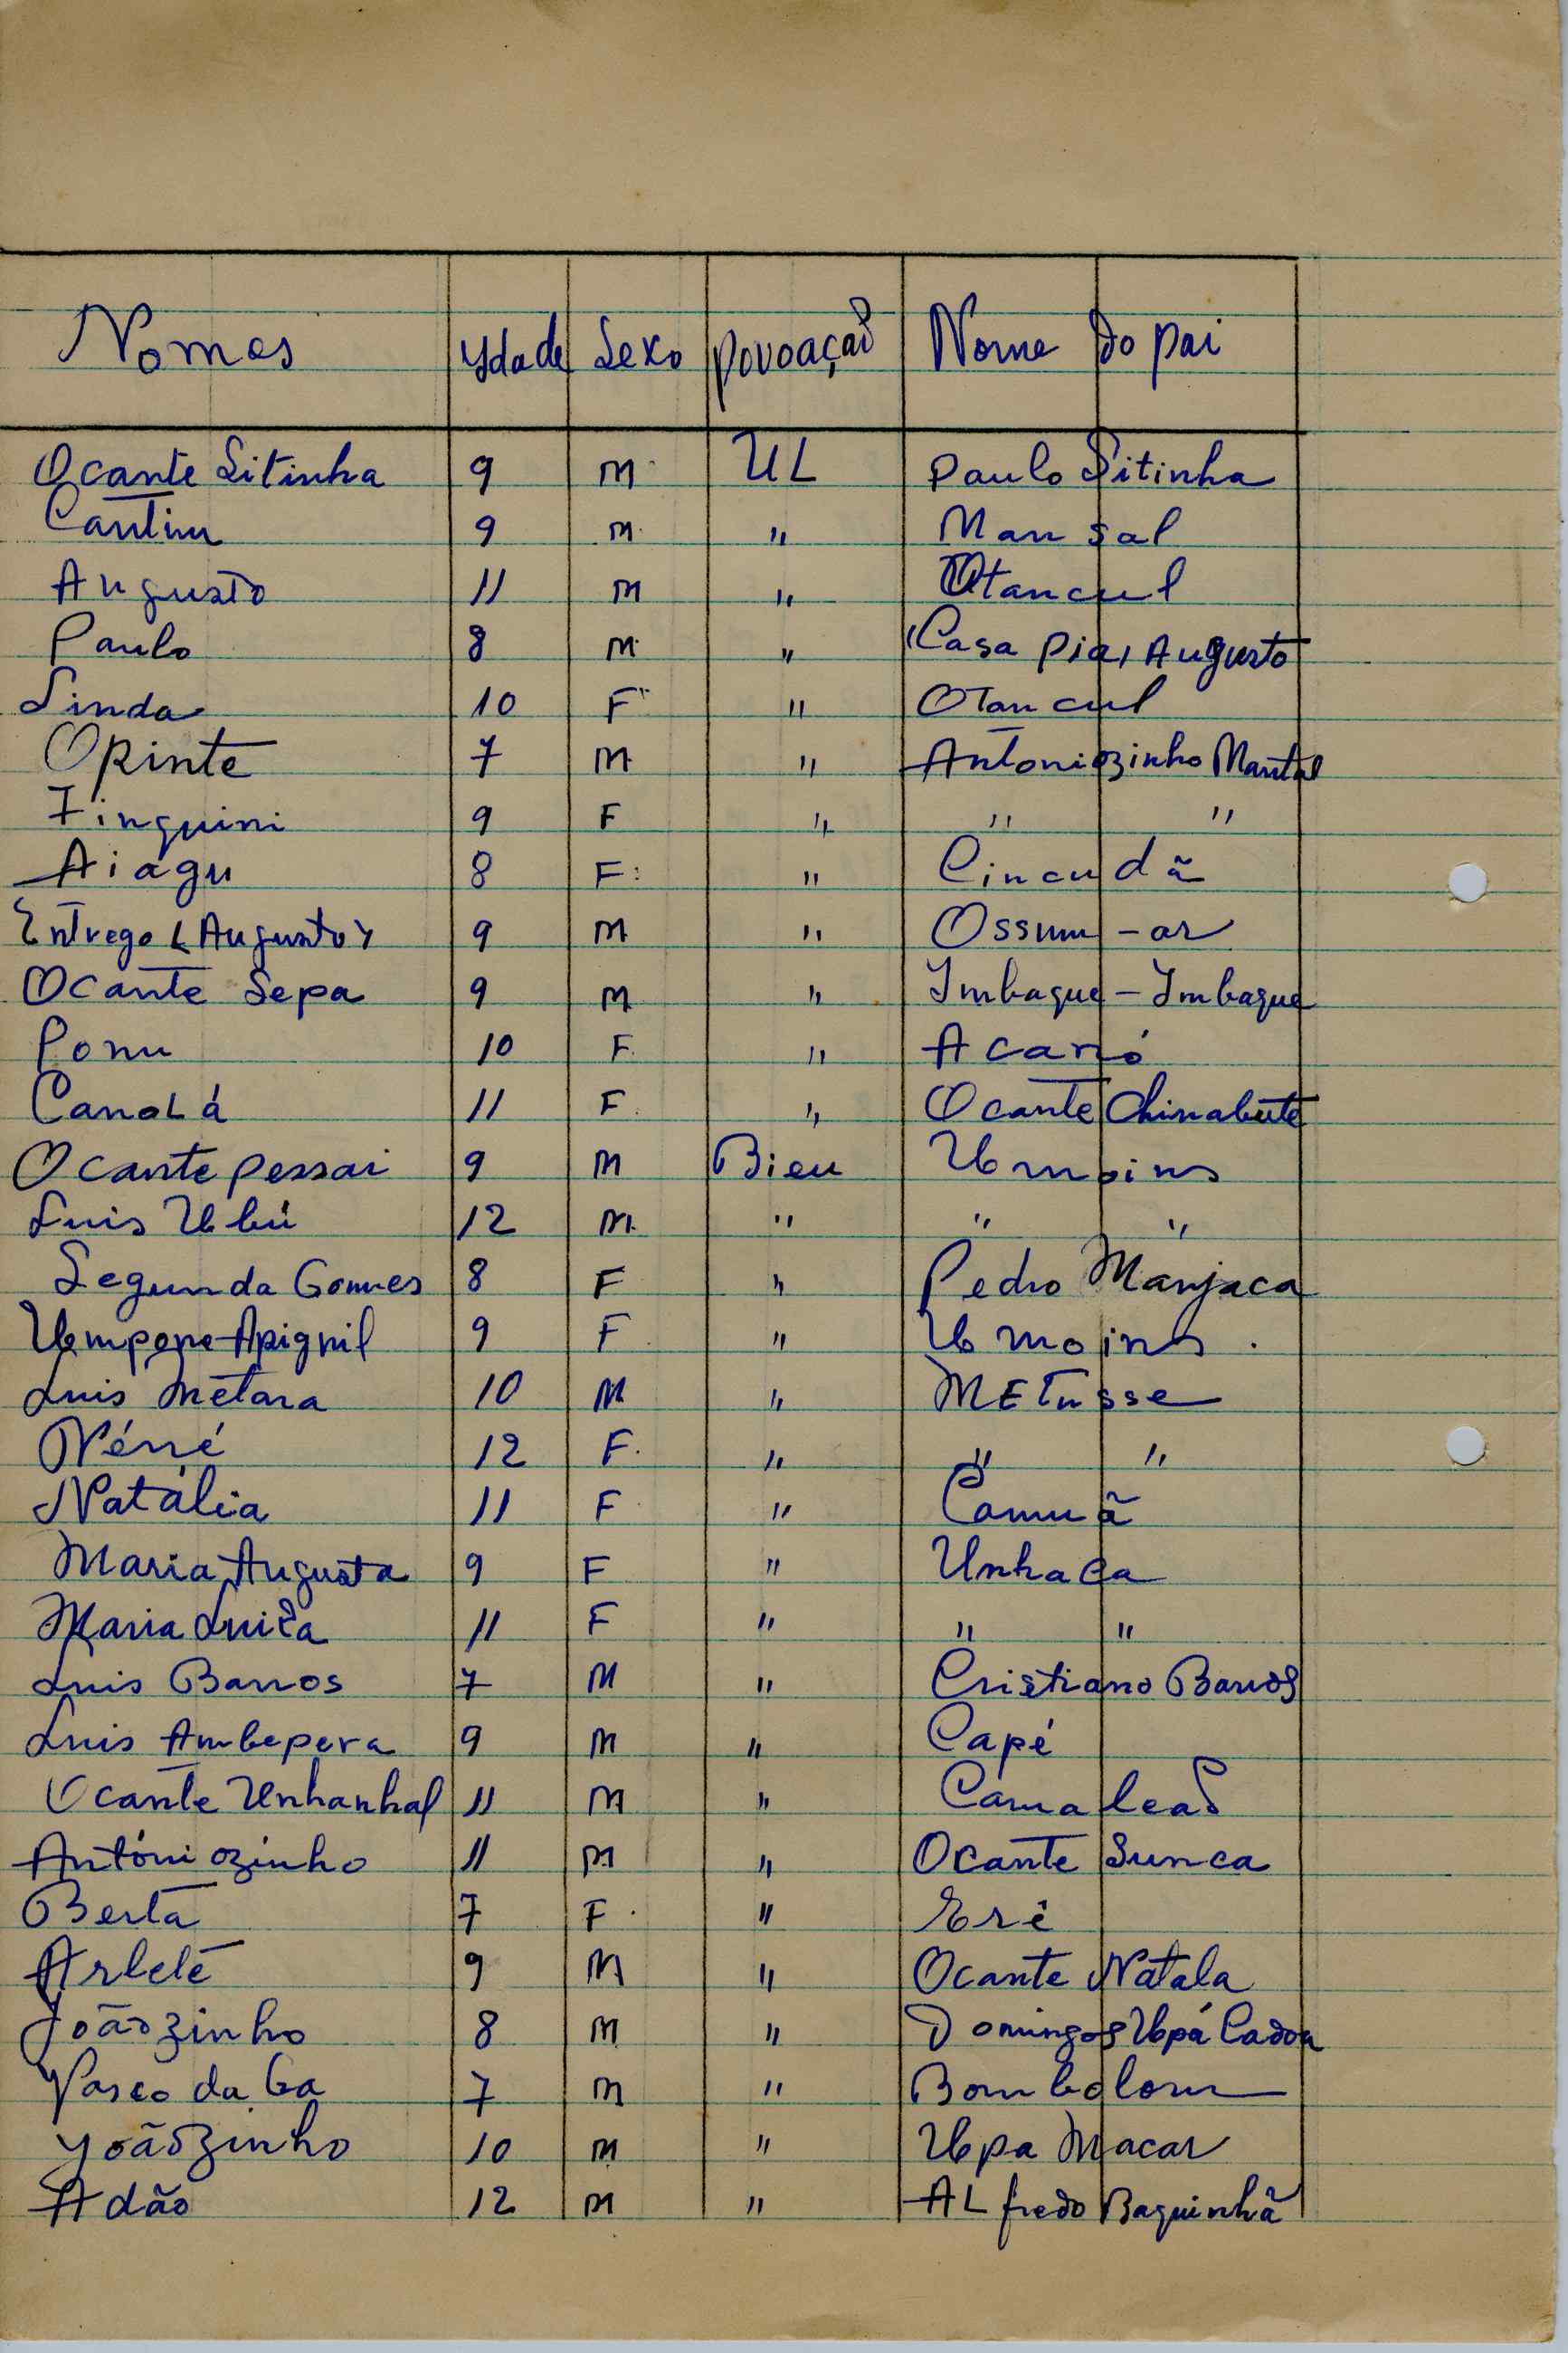 Nomes Ydade Sexo povoação Nome do pai
Ocante Sitinha 9 M UL Paulo Sitinha
Cantim 9 M " Mansal
Augusto 11 M " Otancul
Paulo 8 M " (Casa Pia, Augusto
Linda 10 F " Otancul
Opinte 7 M " Antoniozinho Mantal
Finguini 9 F " " "
Aiágu 8 F " Cincudã
Entrego (Augusto) 9 M " Ossum-ar
Ocante Sepa 9 M " Imbaque - Imbaque
Ponu 10 F " Acanó
Canalá 11 F " Ocante Chinabute
Ocante pessai 9 M Bieu Umoins
Luis Ubú 12 M " " "
Segunda Gomes 8 F " Pedro Manjaca
Umpone Apignil 9 F " Umoins.
Luis Metara 10 M " METusse
Néné 12 F " " "
Natália 11 F " Camuã
Maria Augusta 9 F " Unhaca
Maria Luiza 11 F " " "
Luis Barros 7 M " Cristiano Barros
Luis Ambepera 9 M " Capé
Ocante Unhanhal 11 M " Camaleão
Antóniozinho 11 M " Ocante Sunca
Berta 7 F " Erê
Arlete 9 M " Ocante Natala
Joãozinho 8 M " Domingos Upá Cadoa
Vasco da Ga 7 M " Bombolom
Yoãozinho 10 M " Upa Macar
Adão 12 M " ALfredo Baguinhã